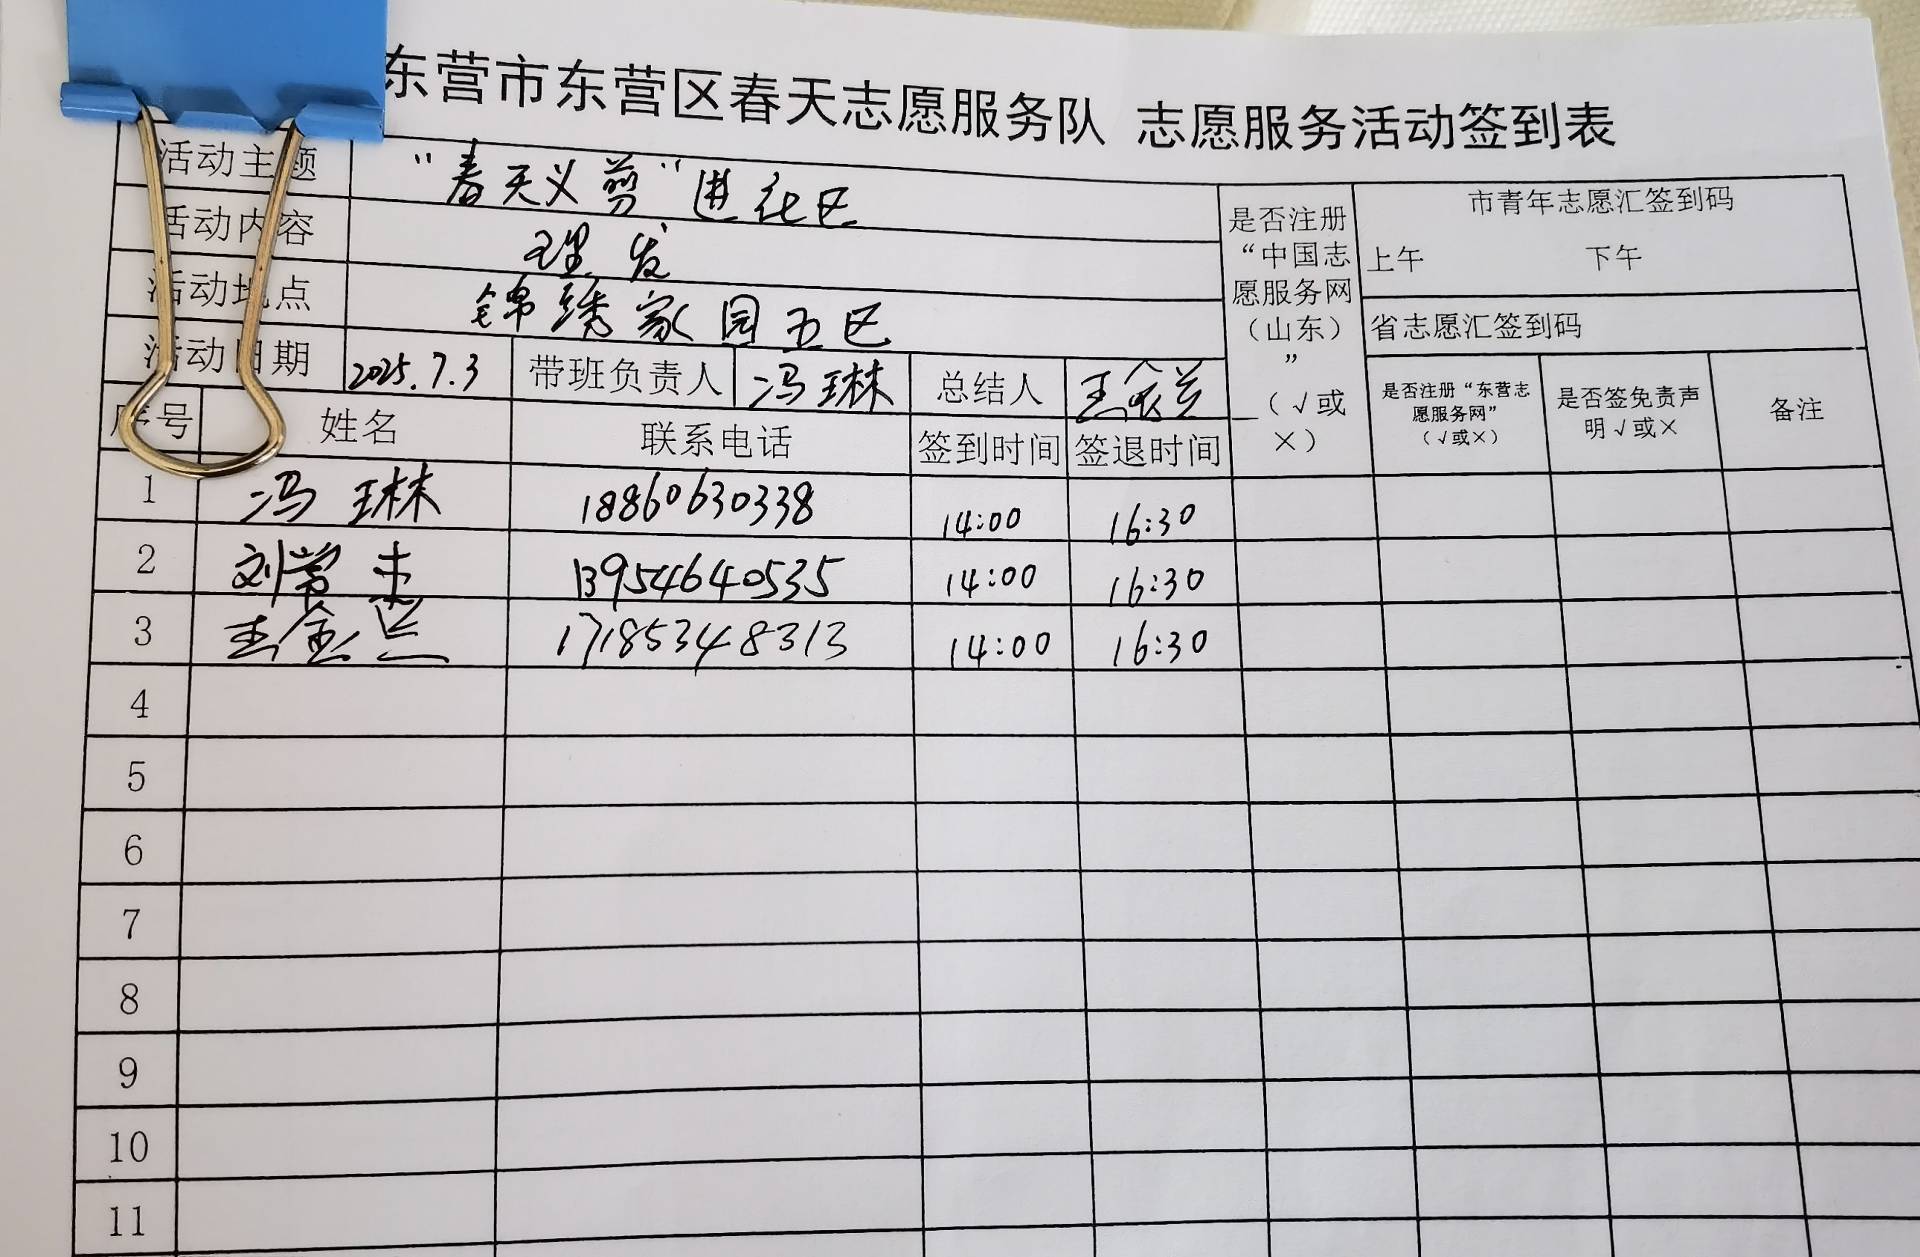 东营市东营区春天志愿服务队 志愿服务活动签到表
活动主题 “春天义剪”进社区
活动内容 理发
活动地点 锦绣家园五区
活动日期 2025.7.3 带班负责人 冯琳 总结人 王金兰
是否注册“中国志愿服务网（山东）”_（√或×）
市青年志愿汇签到码
上午 下午
省志愿汇签到码
是否注册“东营志愿服务网”（√或×）
是否签免责声明√或×
备注
序号 姓名 联系电话 签到时间 签退时间
1 冯琳 18860630338 14:00 16:30
2 刘常 13954640535 14:00 16:30
3 王金兰 17185348313 14:00 16:30
4
5
6
7
8
9
10
11